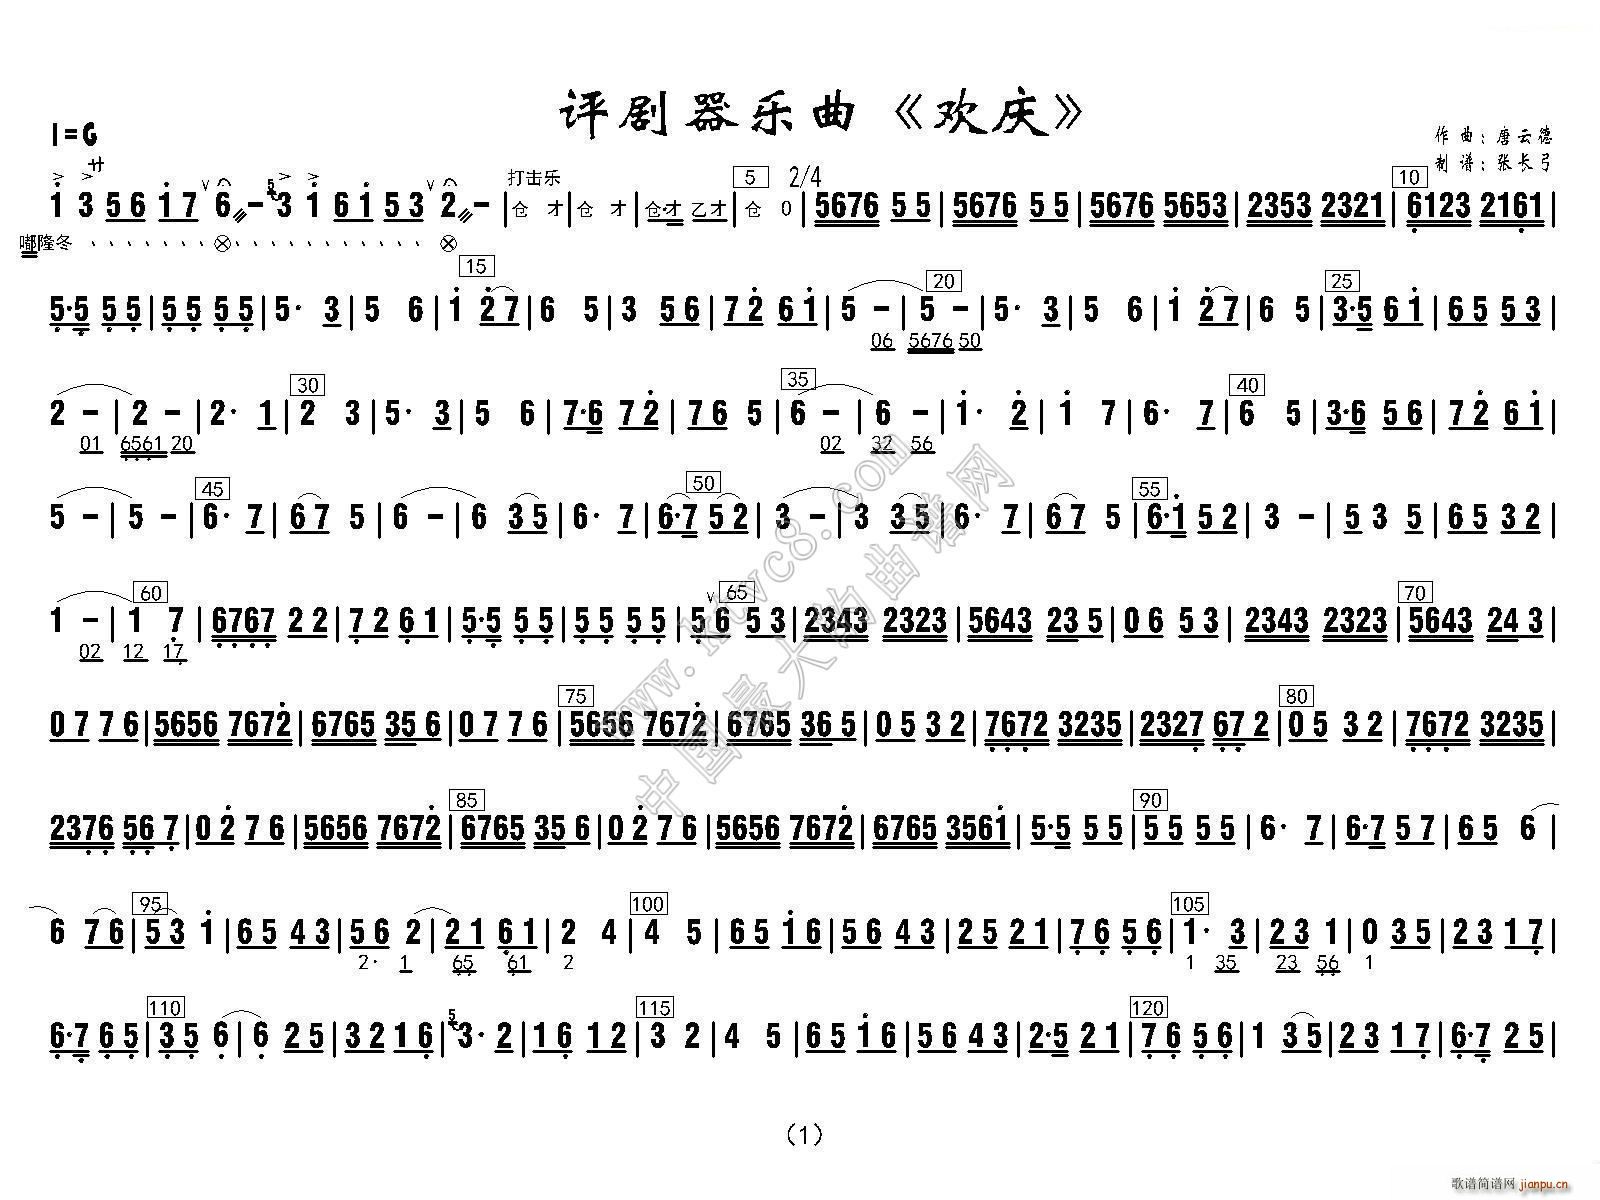 评剧器乐曲《欢庆》
1=G
作曲：唐云德
制谱：张长弓
サ 打击乐 5 2/4 10
i 3 5 6 i 7 6 – 5 3 i 6 i 5 3 2 – | 仓 才 | 仓 才 | 仓·才 乙才 | 仓 0 | 5676 5 5 | 5676 5 5 | 5676 5653 | 2353 2321 | 6123 2161 |
嘟隆冬
15 20 25
5·5 5 5 | 5 5 5 5 | 5· 3 | 5 6 | i 2 7 | 6 5 | 3 5 6 | 7 2 6 i | 5 – | 5 – | 5· 3 | 5 6 | i 2 7 | 6 5 | 3·5 6 i | 6 5 5 3 |
06 5676 50
30 35 40
2 – | 2 – | 2· 1 | 2 3 | 5· 3 | 5 6 | 7·6 7 2 | 7 6 5 | 6 – | 6 – | i· 2 | i 7 | 6· 7 | 6 5 | 3·6 5 6 | 7 2 6 i |
01 6561 20 02 32 56
45 50 55
5 – | 5 – | 6· 7 | 6 7 5 | 6 – | 6 3 5 | 6· 7 | 6·7 5 2 | 3 – | 3 3 5 | 6· 7 | 6 7 5 | 6·i 5 2 | 3 – | 5 3 5 | 6 5 3 2 |
60 65 70
1 – | 1 7 | 6767 2 2 | 7 2 6 1 | 5·5 5 5 | 5 5 5 5 | 5 6 5 3 | 2343 2323 | 5643 23 5 | 0 6 5 3 | 2343 2323 | 5643 24 3 |
02 12 17
75 80
0 7 7 6 | 5656 7672 | 6765 35 6 | 0 7 7 6 | 5656 7672 | 6765 36 5 | 0 5 3 2 | 7672 3235 | 2327 67 2 | 0 5 3 2 | 7672 3235 |
85 90
2376 56 7 | 0 2 7 6 | 5656 7672 | 6765 35 6 | 0 2 7 6 | 5656 7672 | 6765 3561 | 5·5 5 5 | 5 5 5 5 | 6· 7 | 6·7 5 7 | 6 5 6 |
95 100 105
6 7 6 | 5 3 i | 6 5 4 3 | 5 6 2 | 2 1 6 1 | 2 4 | 4 5 | 6 5 i 6 | 5 6 4 3 | 2 5 2 1 | 7 6 5 6 | 1· 3 | 2 3 1 | 0 3 5 | 2 3 1 7 |
2· 1 65 61 2 1 35 23 56 1
110 115 120
6·7 6 5 | 3 5 6 | 6 2 5 | 3 2 1 6 | 5 3· 2 | 1 6 1 2 | 3 2 | 4 5 | 6 5 i 6 | 5 6 4 3 | 2·5 2 1 | 7 6 5 6 | 1 3 5 | 2 3 1 7 | 6·7 2 5 |
（1）
www.ktvc8.com
中国最大的曲谱网
歌谱简谱网 jianpu.cn